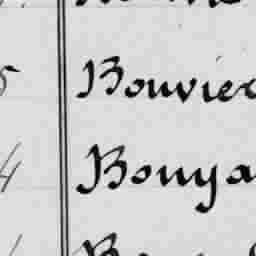 5 Bouvier
4 Bouya